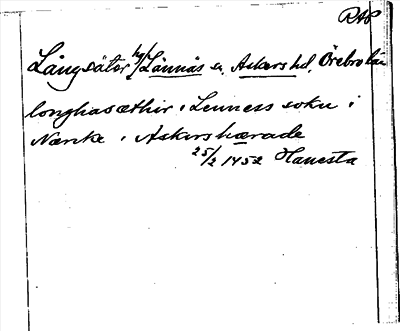 RAP
Långsäter hp/ Lännäs sn, Askers hd, Örebro län
longhasæthir i Lenness sokn i
Nærike i Askers hærade
25/2 1452 Hanesta